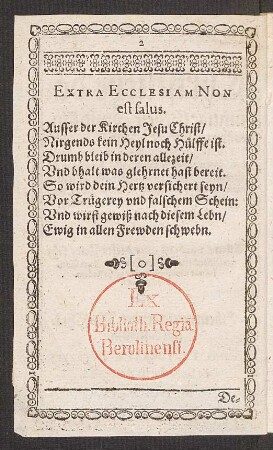 2
EXTRA ECCLESIAM NON
est salus.
Ausser der Kirchen Jesu Christ/
Nirgends kein Heyl noch Hülffe ist.
Drumb bleib in deren allezeit/
Vnd bhalt was glehrnet hast bereit.
So wird dein Hertz versichert seyn/
Vor Trügerey vnd falschem Schein:
Vnd wirst gewiß nach diesem Lebn/
Ewig in allen Frewden schwebn.
[o]
Ex
Biblioth. Regia
Berolinensi.
De-